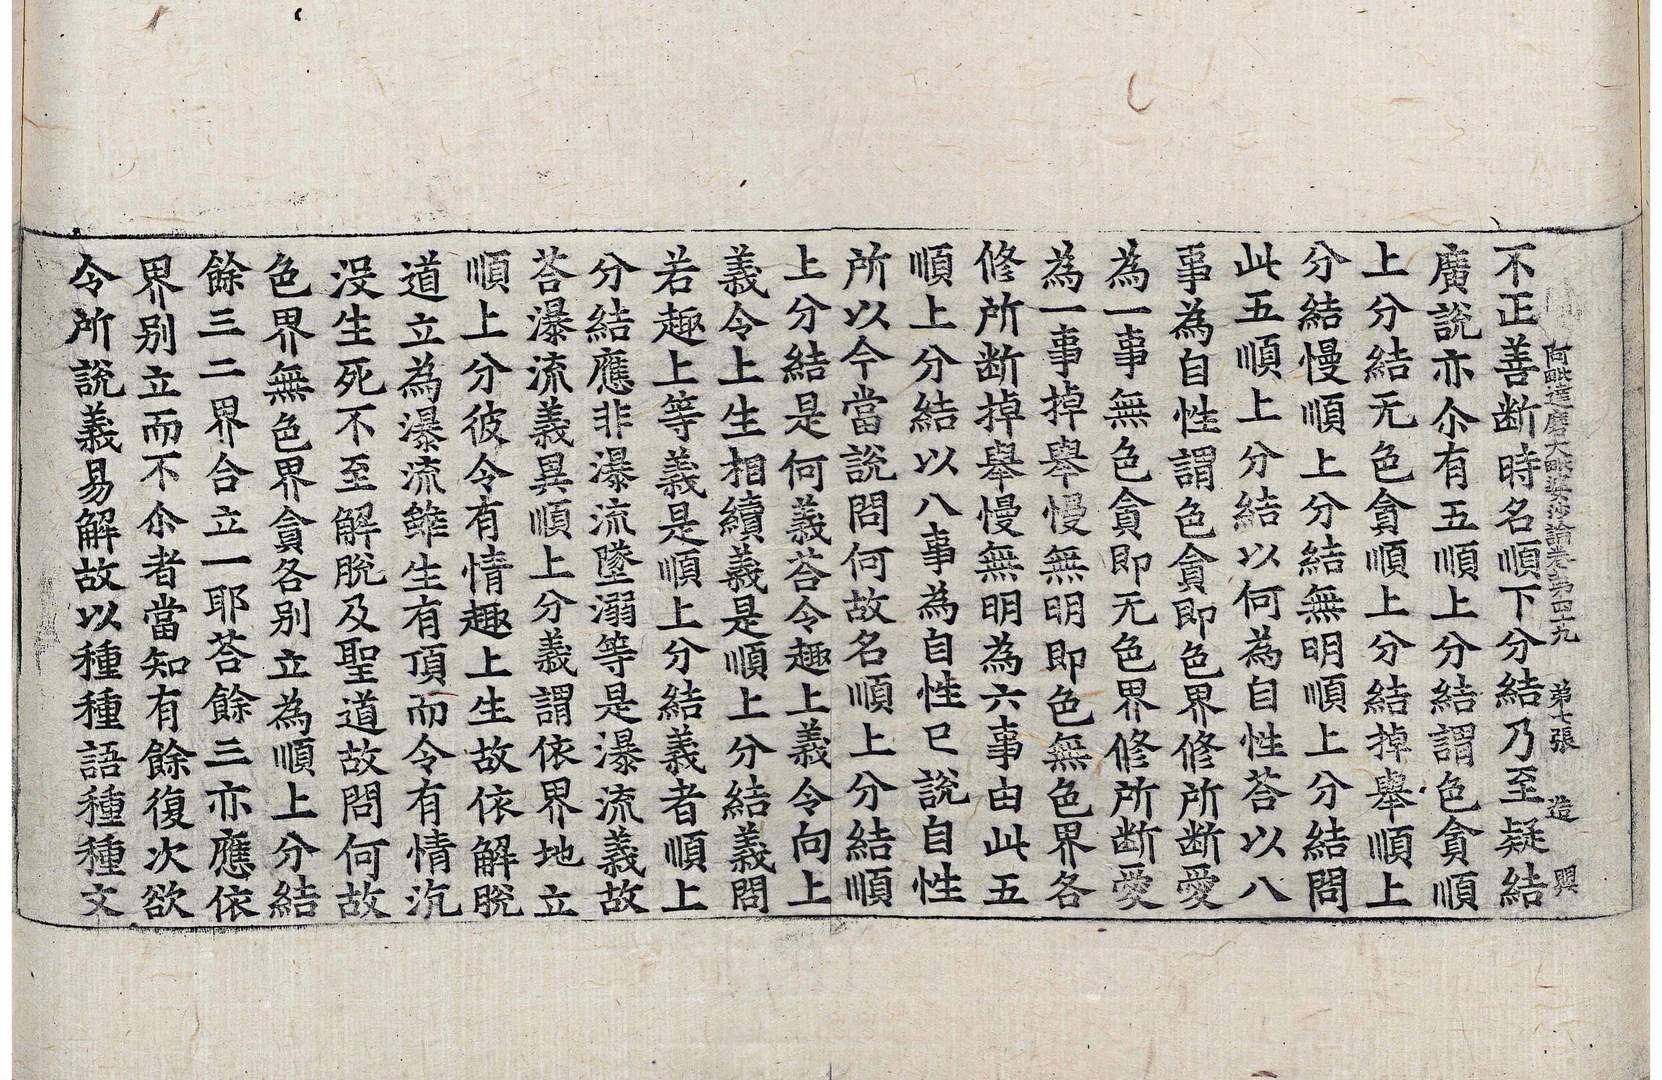 阿毗達磨大毗婆沙論卷第四十九　第七張　造　興
不正善断時名順下分結乃至疑結
廣說亦尒有五順上分結謂色貪順
上分結无色貪順上分結掉舉順上
分結慢順上分結無明順上分結問
此五順上分結以何為自性荅以八
事為自性謂色貪即色界修所断愛
為一事無色貪即无色界修所断愛
為一事掉舉慢無明即色無色界各
修所断掉舉慢無明為六事由此五
順上分結以八事為自性已說自性
所以今當說問何故名順上分結順
上分結是何義荅令趣上義令向上
義令上生相續義是順上分結義問
若趣上等義是順上分結義者順上
分結應非瀑流墜溺等是瀑流義故
荅瀑流義異順上分義謂依界地立
順上分彼令有情趣上生故依解脫
道立為瀑流雖生有頂而令有情沉
没生死不至解脫及聖道故問何故
色界無色界貪各别立為順上分結
餘三二界合立一耶荅餘三亦應依
界别立而不尒者當知有餘復次欲
令所說義易解故以種種語種種文